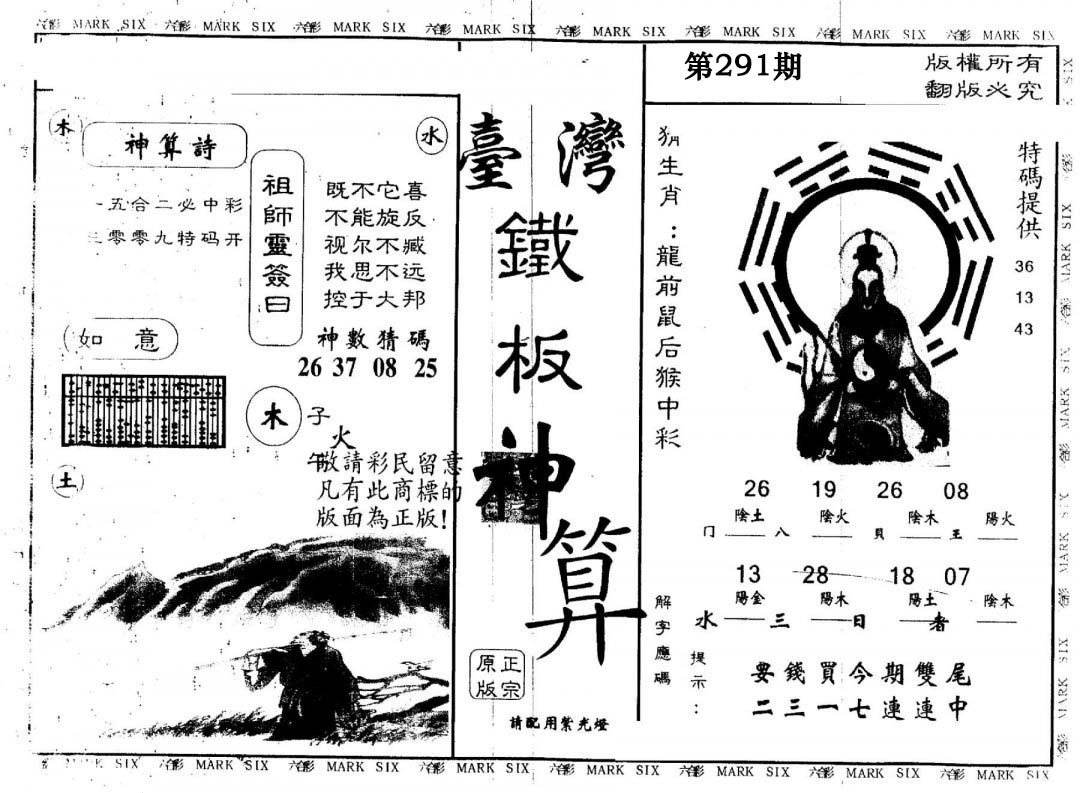 六合彩 MARK SIX 六合彩 MARK SIX 六合彩 MARK SIX 六合彩 MARK SIX 六合彩 MARK SIX 六合彩 MARK SIX 六合彩 MARK SIX 六合彩 MARK SIX
第291期
版權所有
翻版必究
木
神算詩
水
一五合二必中彩
三零零九特码开
祖師靈簽曰
既不它喜
不能旋反
视尔不臧
我思不远
控于大邦
神數猜碼
26 37 08 25
如意
木
子
火
午
土
敬請彩民留意
凡有此商標的
版面為正版!
臺灣
鐵板神算
正宗
原版
請配用紫光燈
猜生肖:龍前鼠后猴中彩
特碼提供
36
13
43
26 19 26 08
陰土 陰火 陰木 陽火
冂 八 貝 王
13 28 18 07
陽金 陽木 陽土 陰木
水 三 日 者
解字應碼
提示:
要錢買今期雙尾
二三一七連連中
SIX 六合彩 MARK SIX 六合彩 MARK SIX 六合彩 MARK SIX 六合彩 MARK SIX 六合彩 MARK SIX 六合彩 MARK SIX 六合彩 MARK SIX